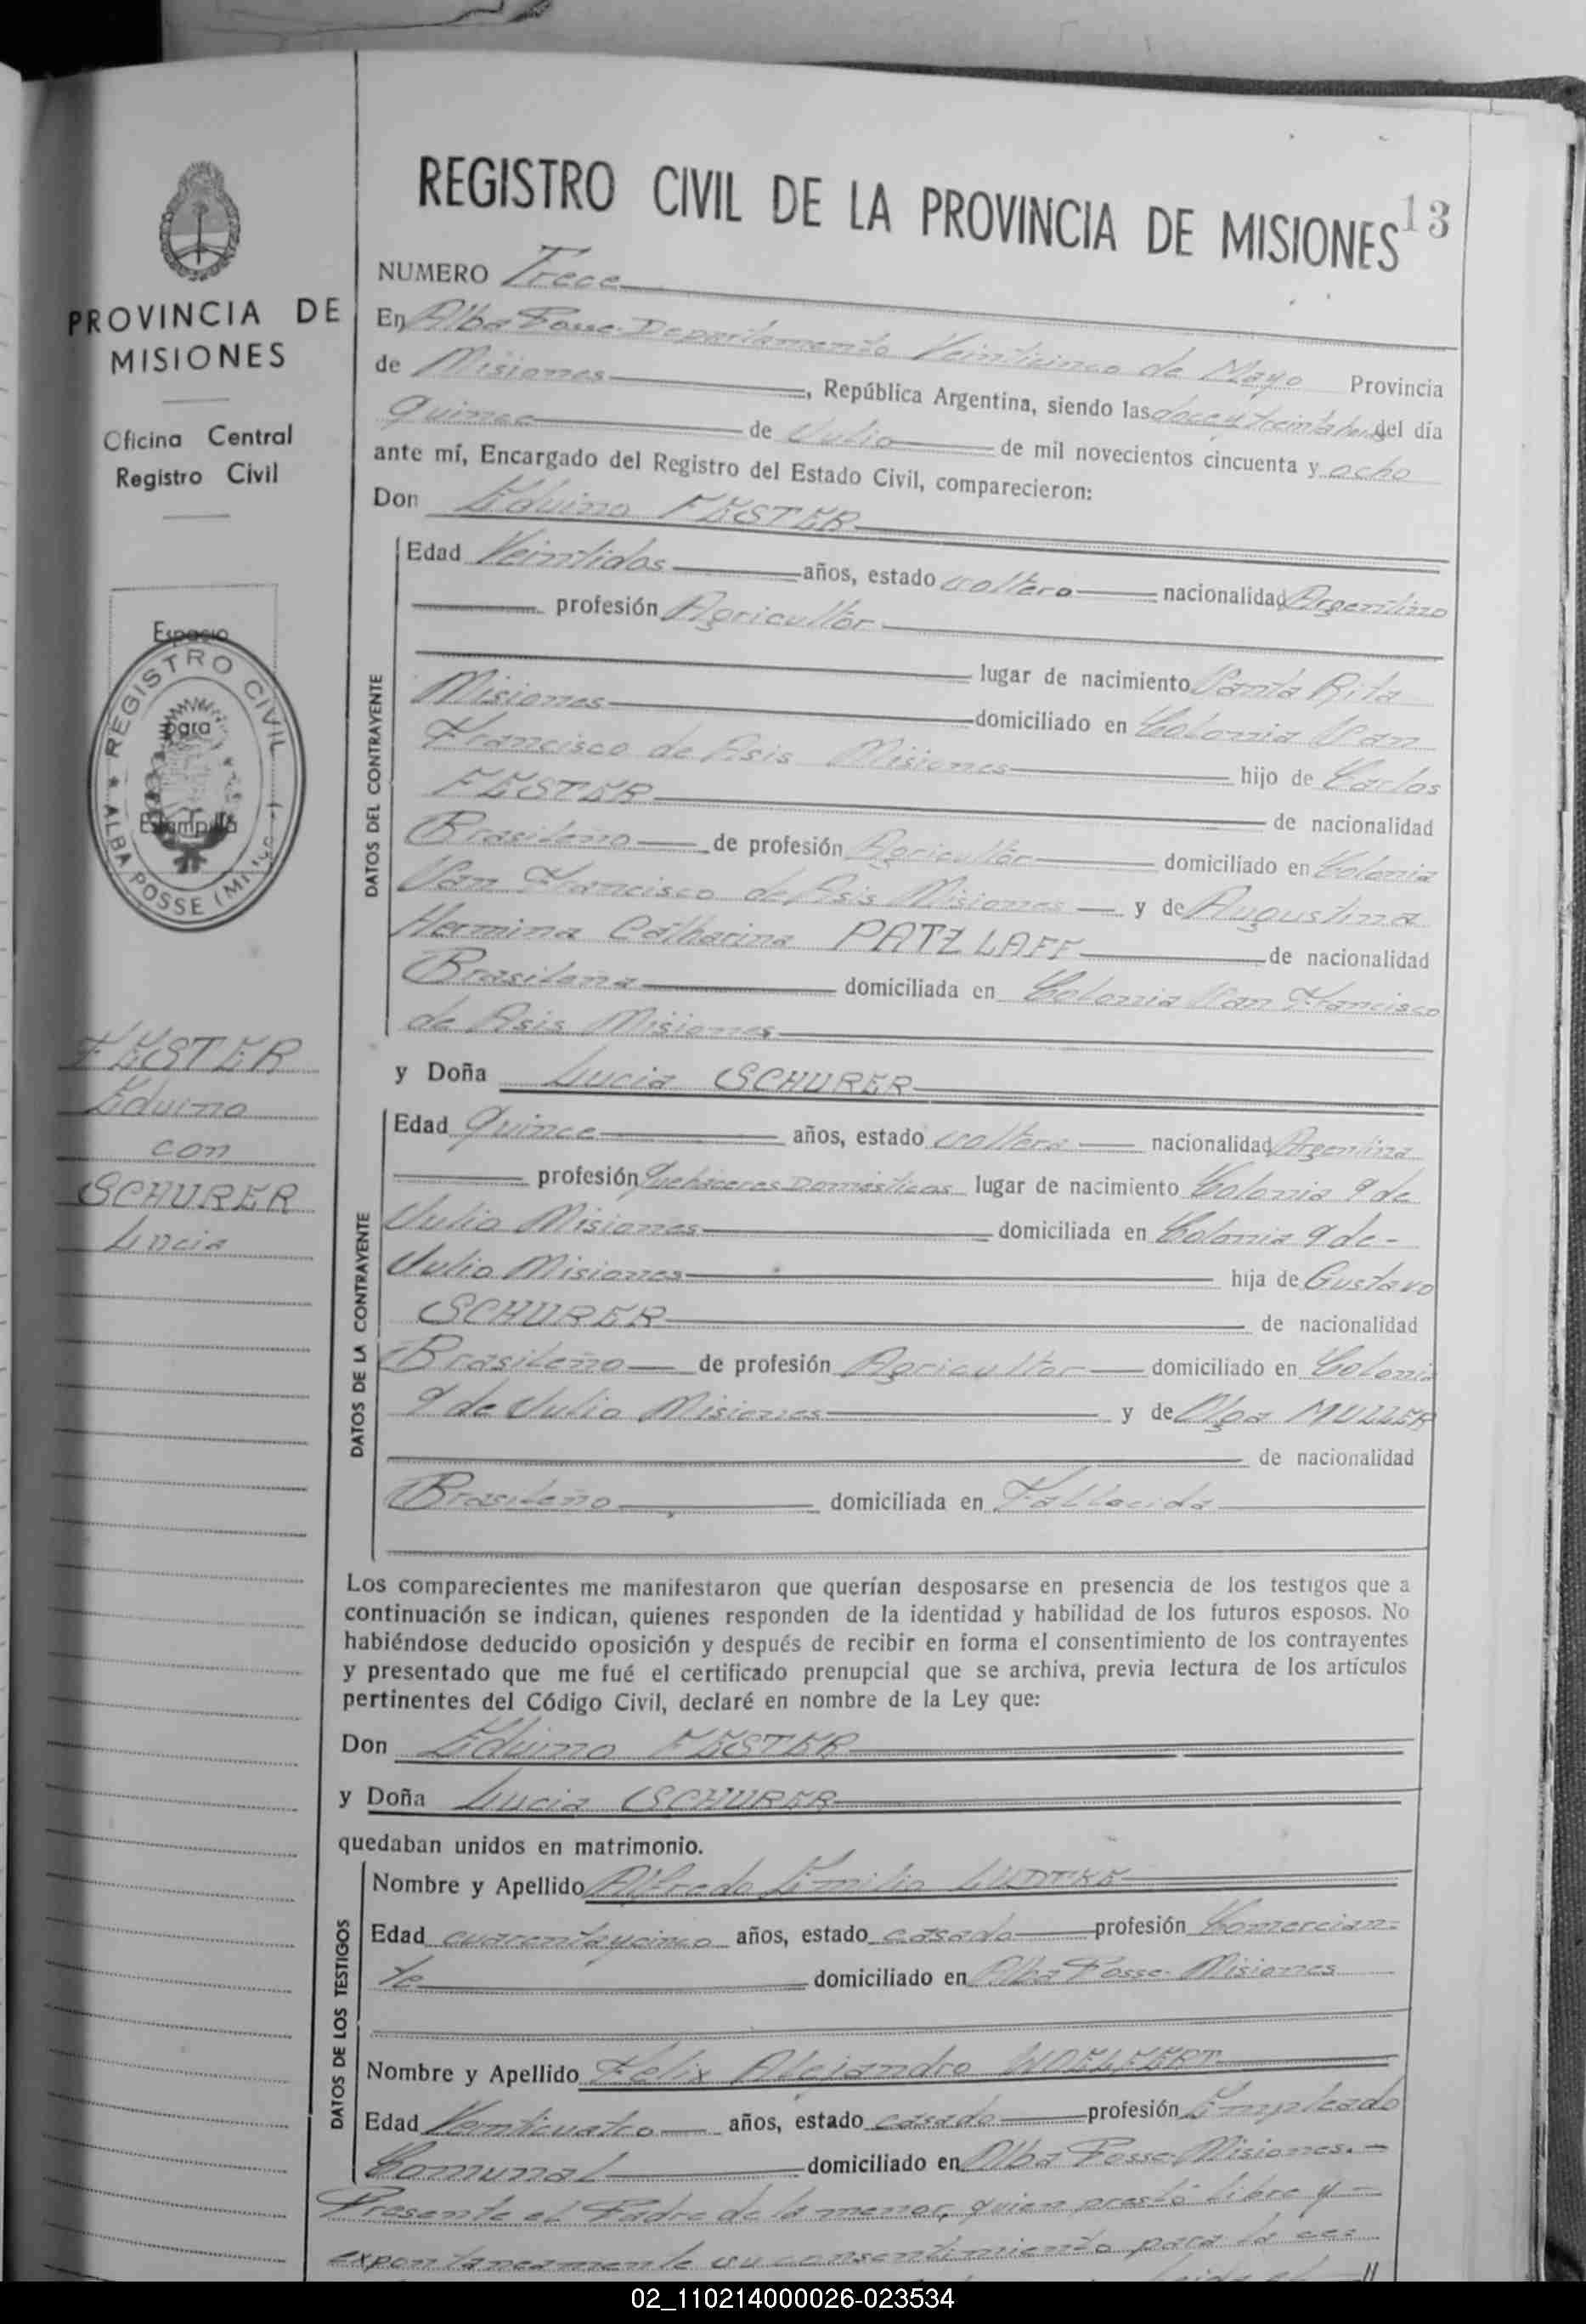 REGISTRO CIVIL DE LA PROVINCIA DE MISIONES 13
PROVINCIA DE
MISIONES
Oficina Central
Registro Civil
Espacio
para
Estampilla
REGISTRO CIVIL
ALBA POSSE (Mnes)
FESTER
Eduino
con
SCHURER
Lucia
NUMERO Trece
En Alba Posse-Departamento Veinticinco de Mayo Provincia
de Misiones, República Argentina, siendo las doce y treinta hs del día
quince de Julio de mil novecientos cincuenta y ocho
ante mí, Encargado del Registro del Estado Civil, comparecieron:
Don Eduino FESTER
DATOS DEL CONTRAYENTE
Edad Veintidos años, estado soltero nacionalidad Argentino
profesión Agricultor
lugar de nacimiento Santa Rita
Misiones domiciliado en Colonia San
Francisco de Asis Misiones hijo de Carlos
FESTER de nacionalidad
Brasileño de profesión Agricultor domiciliado en Colonia
San Francisco de Asis Misiones y de Augustina
Hermina Catharina PATZLAFF de nacionalidad
Brasileña domiciliada en Colonia San Francisco
de Asis Misiones
y Doña Lucia SCHURER
DATOS DE LA CONTRAYENTE
Edad Quince años, estado soltera nacionalidad Argentina
profesión Quehaceres Domésticos lugar de nacimiento Colonia 9 de
Julio Misiones domiciliada en Colonia 9 de-
Julio Misiones hija de Gustavo
SCHURER de nacionalidad
Brasileño de profesión Agricultor domiciliado en Colonia
9 de Julio Misiones y de Olga MULLER
de nacionalidad
Brasileño domiciliada en Fallecida
Los comparecientes me manifestaron que querían desposarse en presencia de los testigos que a
continuación se indican, quienes responden de la identidad y habilidad de los futuros esposos. No
habiéndose deducido oposición y después de recibir en forma el consentimiento de los contrayentes
y presentado que me fué el certificado prenupcial que se archiva, previa lectura de los artículos
pertinentes del Código Civil, declaré en nombre de la Ley que:
Don Eduino FESTER
y Doña Lucia SCHURER
quedaban unidos en matrimonio.
DATOS DE LOS TESTIGOS
Nombre y Apellido Alfredo Emilio LUDTKE
Edad cuarentaycinco años, estado casado profesión Comercian-
te domiciliado en Alba Posse-Misiones
Nombre y Apellido Felix Alejandro WOELFERT
Edad Venticuatro años, estado casado profesión Empleado
Comunal domiciliado en Alba Posse-Misiones.-
Presente el Padre de la menor, quien prestó libre y-
expontaneamente su consentimiento para la ce=
02_110214000026-023534